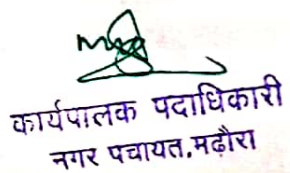 कार्यपालक पदाधिकारी
नगर पचायत,मढ़ौरा